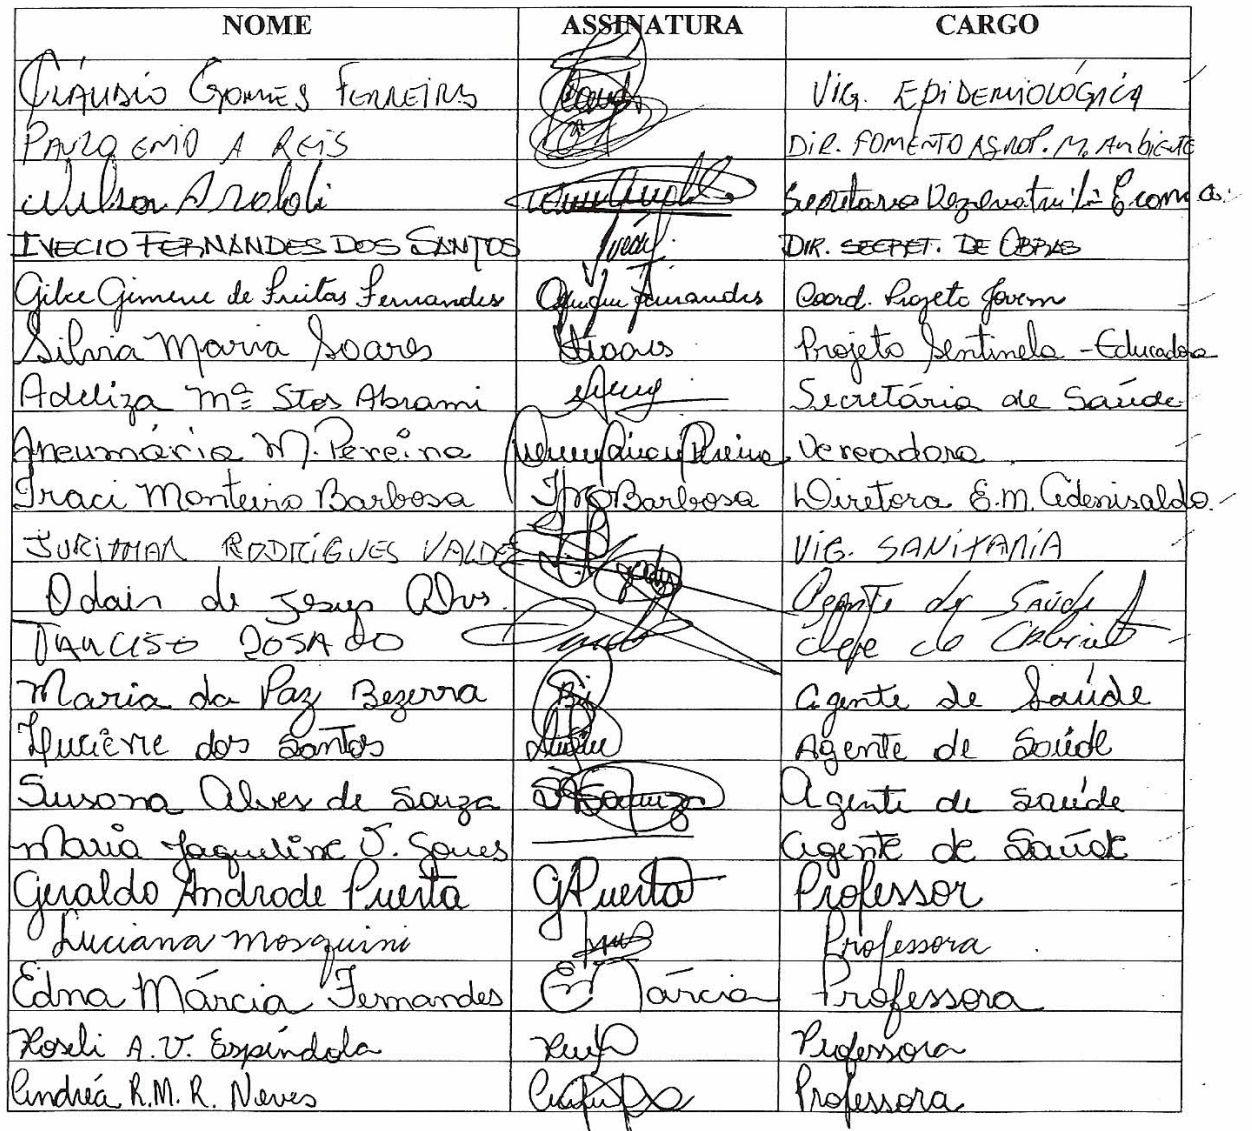 NOME ASSINATURA CARGO
CLÁUDIO GOMES FERREIRA VIG. EPIDEMIOLÓGICA
PAULO EMÍD A REIS DIR. FOMENTO AGROP. M. AMBIENTE
Wilson Secretario
IVECIO FERNANDES DOS SANTOS DIR. SECRET. DE OBRAS
Gilce Gimene de Freitas Fernandes Fernandes Coord. Projeto Jovem
Silvia Maria Soares Projeto Sentinela - Educadora
Adeliza Mª Stos Abrami Secretária de Saúde
Aneumária M. Pereira Pereira Vereadora
Iraci Monteiro Barbosa Barbosa Diretora E.M. Adenisaldo.
JURIMAR RODRIGUES VALDES VIG. SANITARIA
Odair de Jesus Alvs. Agente de Saúde
TARCISO ROSADO chefe de Gabinet
Maria da Paz Bezerra Agente de Saúde
Lucierre dos Santos Agente de Saúde
Susana Alves de Souza Agente de Saúde
Maria Jaqueline Agente de Saúde
Geraldo Andrade Puerta GAPuerta Professor
Luciana Mosquini Professora
Edna Márcia Fernandes E. Márcia Professora
Roseli A.V. Espíndola Professora
Andréa R.M.R. Neves Professora